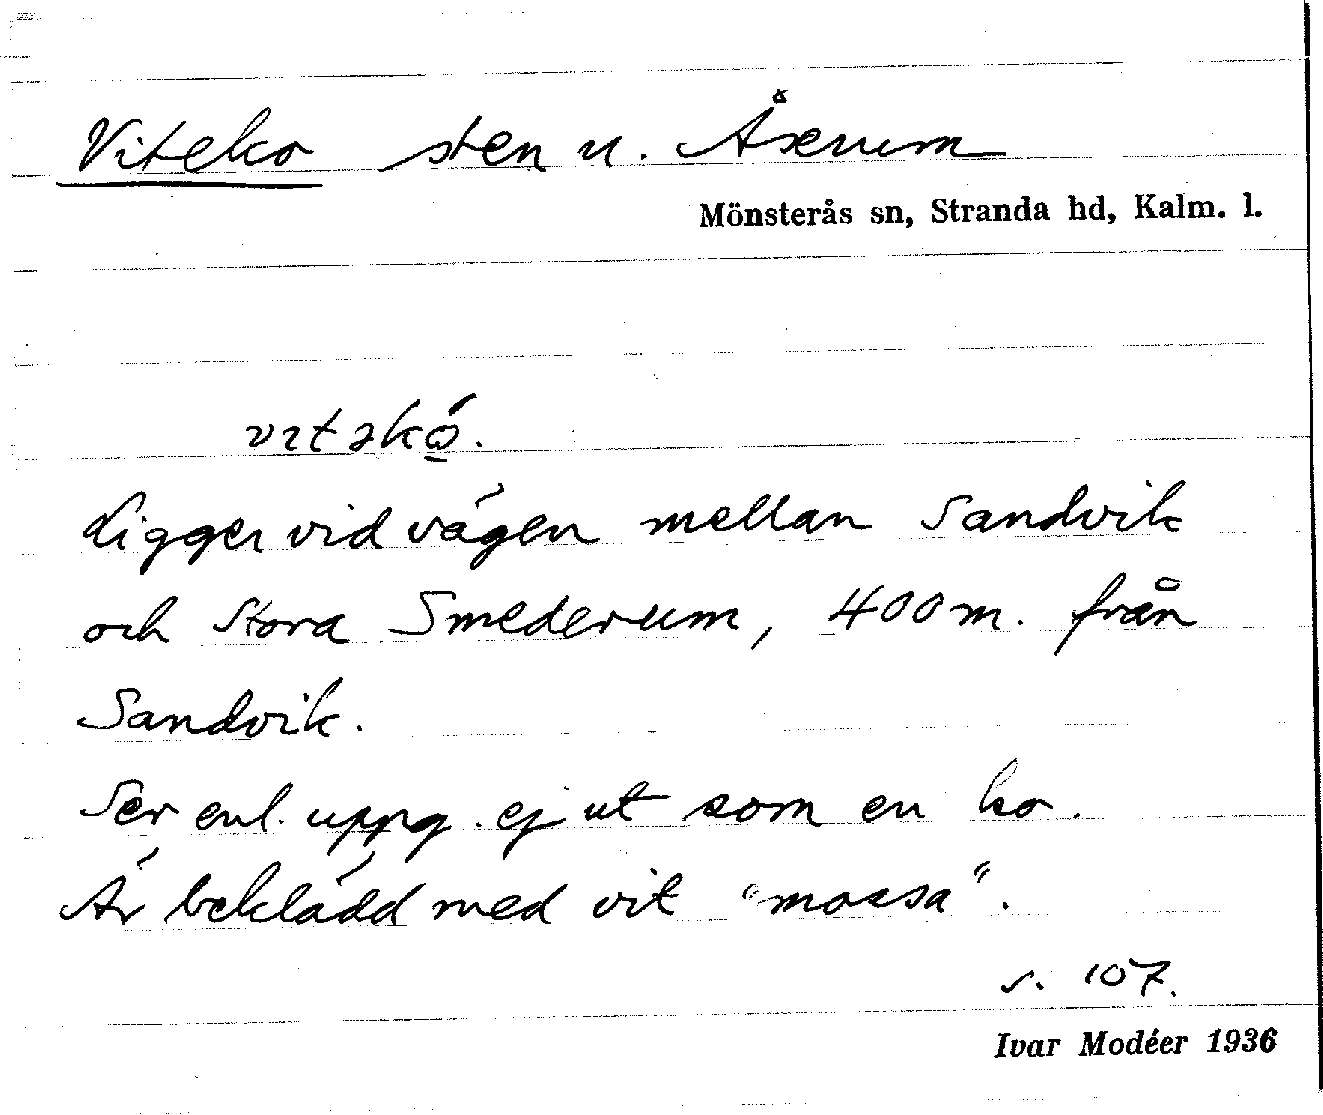 Viteko sten u. Åserum
Mönsterås sn, Stranda hd, Kalm. l.
Ligger vid vägen mellan Sandvik
och Stora Smederum, 400 m. från
Sandvik.
Ser enl. uppg. ej ut som en ko.
Är beklädd med vit "mossa".
s. 107.
Ivar Modéer 1936